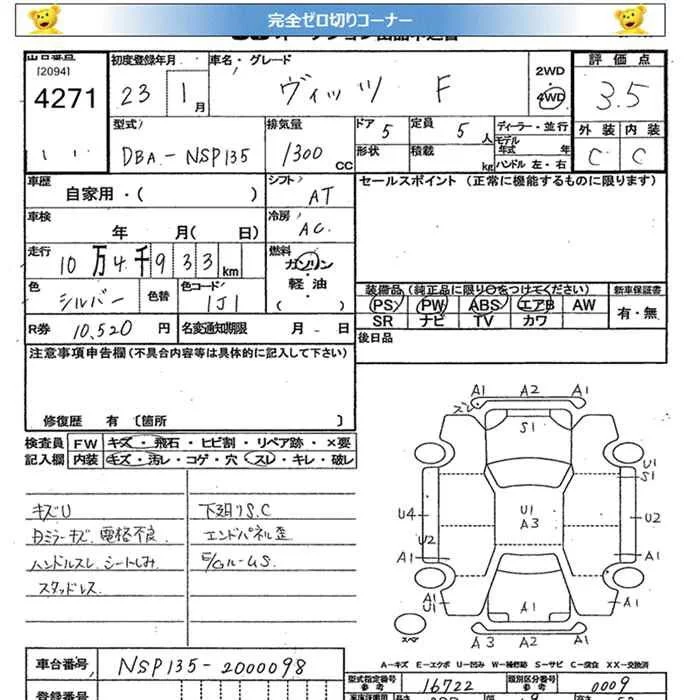 完全ゼロ切りコーナー
[2094]
4271
初度登録年月
23 1月
車名・グレード
ヴィッツ F
2WD
4WD
評価点
3.5
型式
DBA-NSP135
排気量
1300 CC
ドア 5
定員 5人
形状
積載 kg
ディーラー・並行
モデル年式 年
ハンドル 左・右
外装 内装
C C
車歴
自家用・( )
シフト
AT
セールスポイント (正常に機能するものに限ります)
車検
年 月( 日)
冷房
AC
走行
10万4千933km
燃料
ガソリン・軽油
( )
色
シルバー
色替
色コード
1J1
装備品 (純正品に限り○をつけてください)
新車保証書
PS PW ABS エアB AW
SR ナビ TV カワ
有・無
R券 10,520円
名変通知期限 月 - 日
後日品
注意事項申告欄(不具合内容等は具体的に記入して下さい)
修復歴 有 〔箇所 〕
検査員記入欄
FW キズ・飛石・ヒビ割・リペア跡・×要
内装 キズ・汚レ・コゲ・穴・スレ・キレ・破レ
キズU
ミラーキズ 電格不良
ハンドルスレ シートしみ
スタッドレス
下廻りS.C
エンドパネル歪
A1 A2 A1
ズレ
S1
U1
S1
U4
U1
A3
U2
U2
A1
A1
A1
U1
A1
A1
A3 A2
A-キズ E-エクボ U-凹み W-補修跡 S-サビ C-腐食 XX-交換済
車台番号
NSP135-2000098
型式指定番号 参考
16722
類別区分番号 参考
0009
登録番号